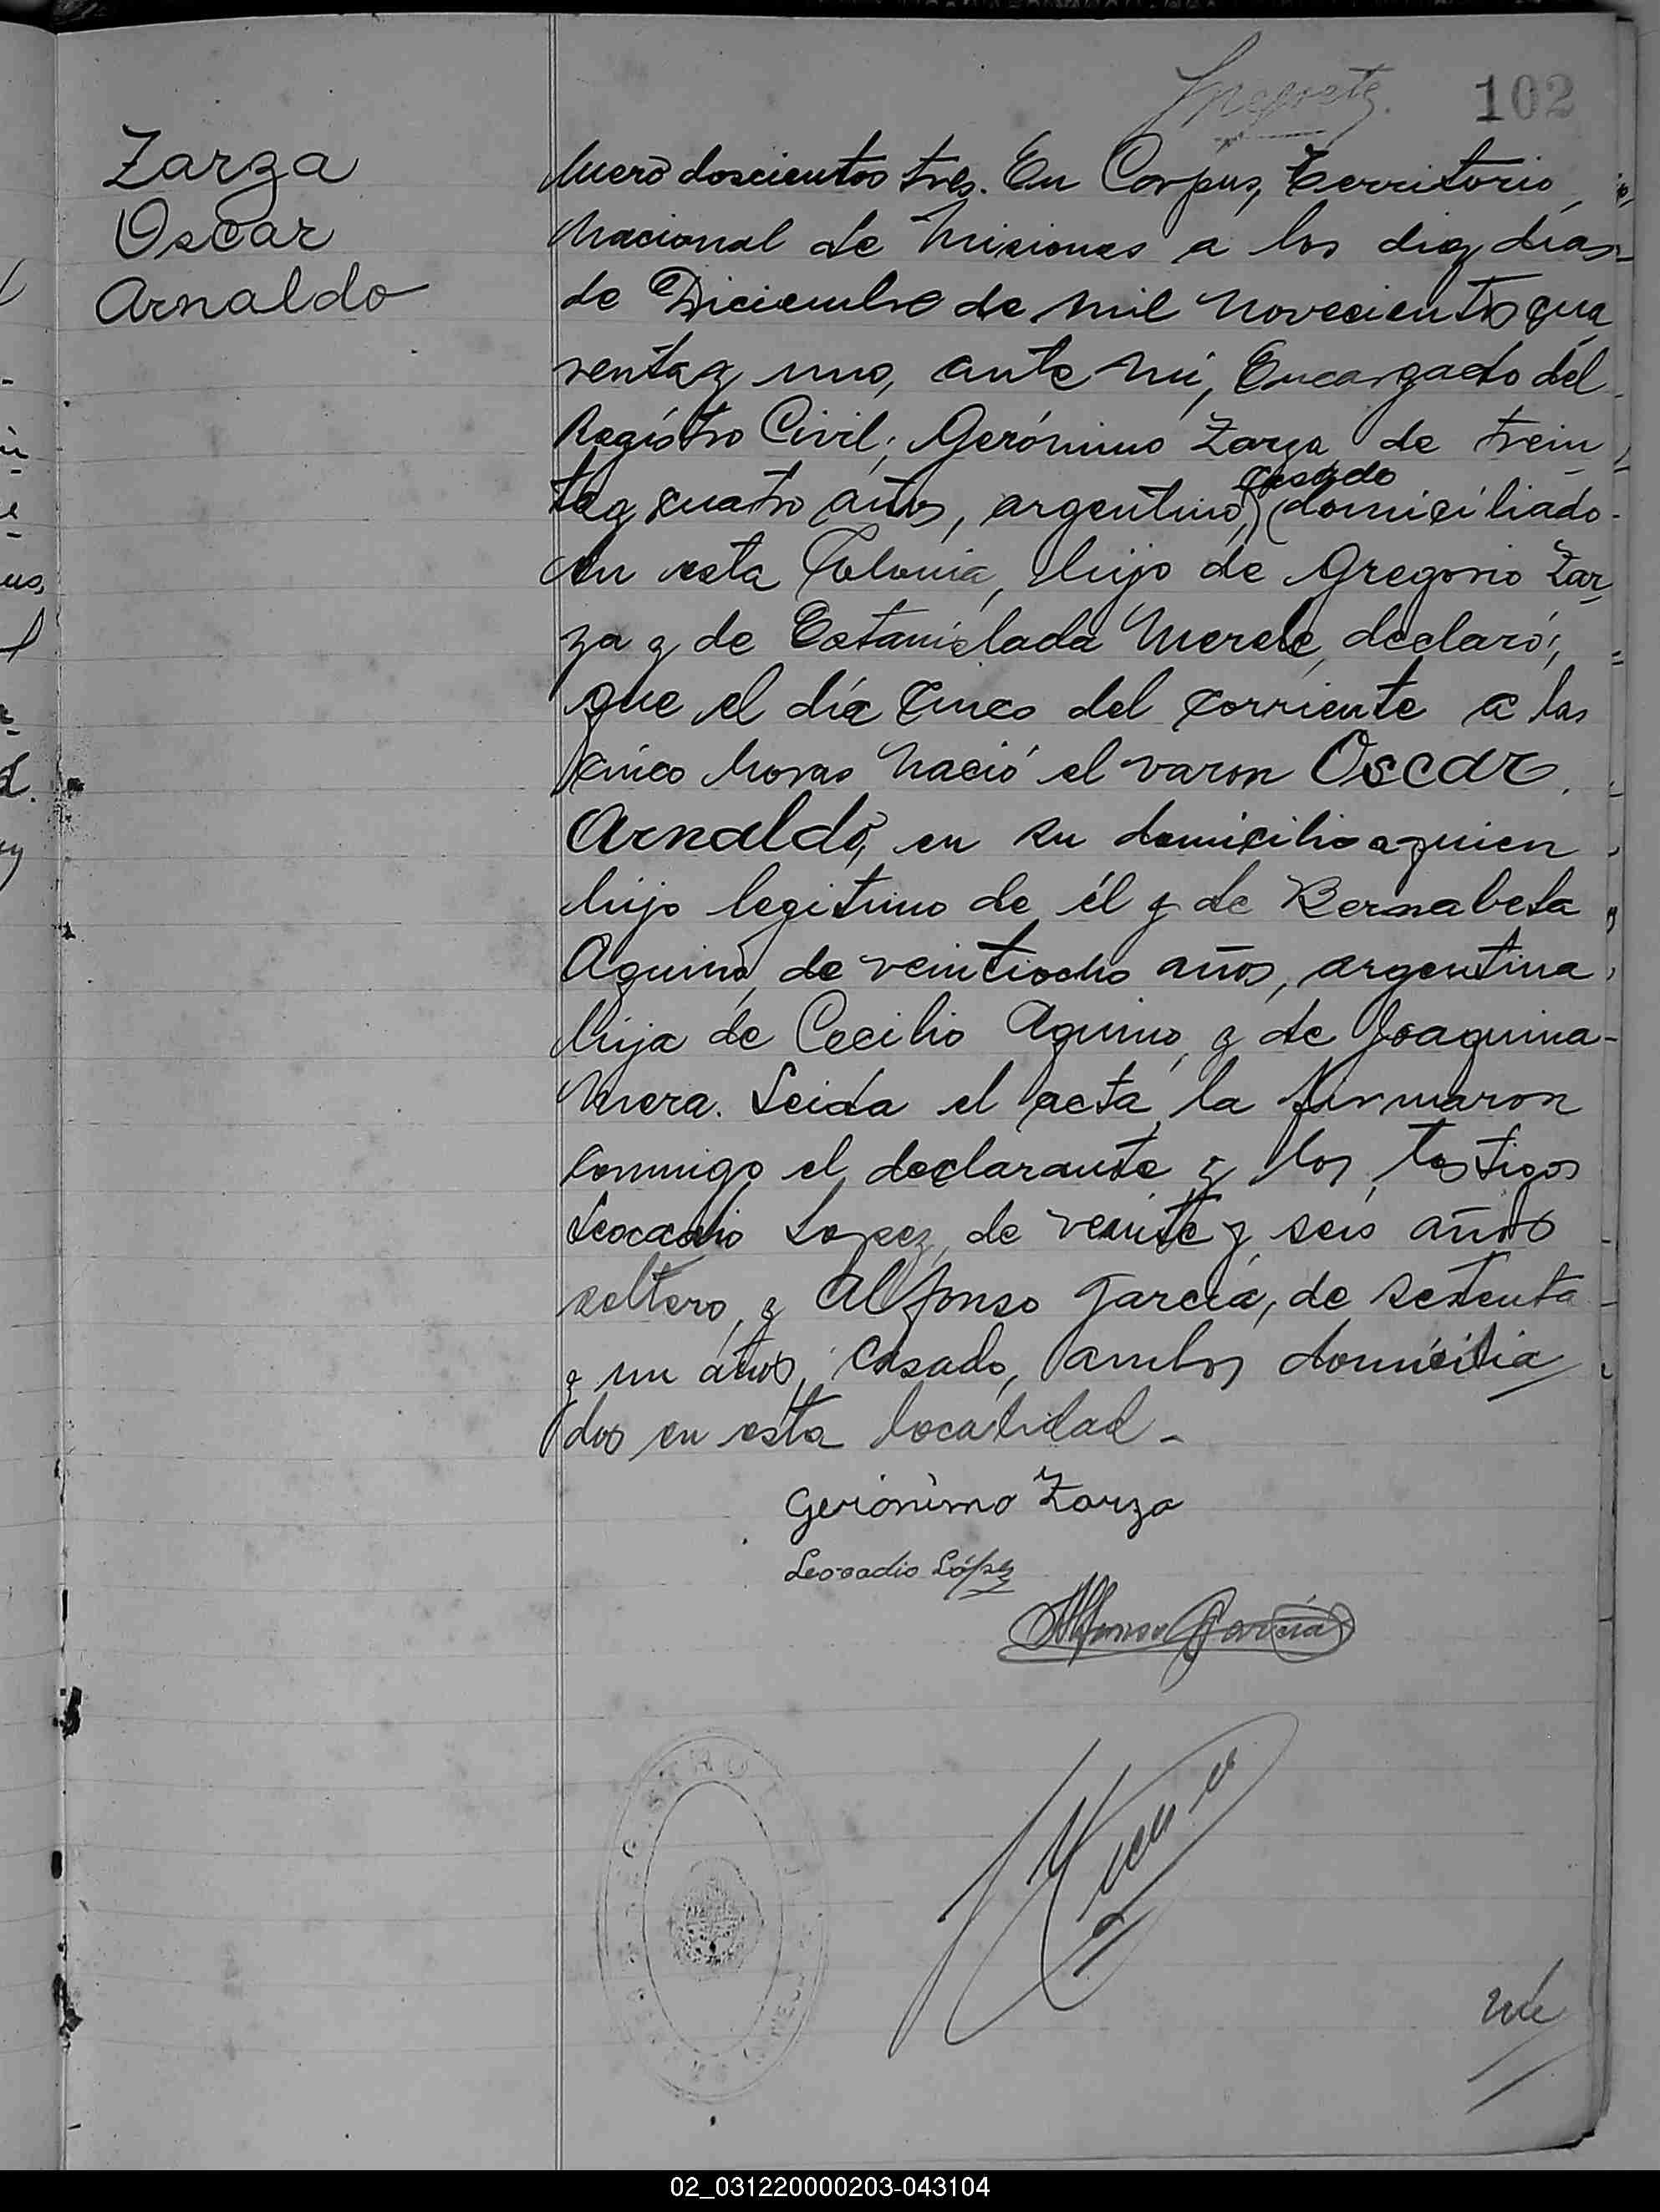 102
Zarza
Oscar
Arnaldo
Numero doscientos tres. En Corpus, Territorio
Nacional de Misiones a los diez dias
de Diciembre de mil novecientos qua
renta y uno, ante mi, Encargado del
Registro Civil; Gerónimo Zarza, de trein
casado
ta y cuatro años, argentino, domiciliado
en esta Colonia, hijo de Gregorio Zar
za y de Estanislada Merele, declaró;
que el día cinco del corriente a las
cinco horas nació el varon Oscar
Arnaldo, en su domicilio a quien
hijo legitimo de él y de Bernabela
Aquino, de veintiocho años, argentina
hija de Cecilio Aquino, y de Joaquina
Mera. Leida el acta, la firmaron
conmigo el declarante y los testigos
Leocadio Lopez, de veinte y seis años
soltero, y Alfonso García, de setenta
y un años, casado, ambos domicilia
dos en esta localidad -
Gerónimo Zarza
Leocadio López
Alfonso García
02_031220000203-043104